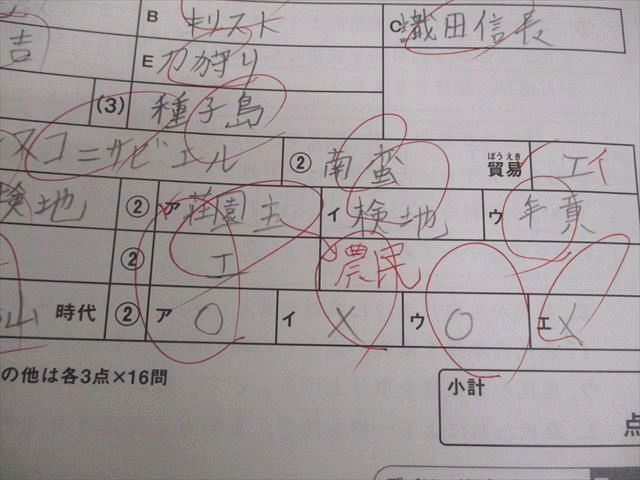 吉 B キリスト C 織田信長
E 刀狩り
(3) 種子島
スコ=ザビエル ② 南蛮 貿易 エイ
検地 ② ア 荘園主 イ 検地 ウ 年貢
② エ 農民
山 時代 ② ア ○ イ × ウ ○ エ ×
の他は各3点×16問
小計
点